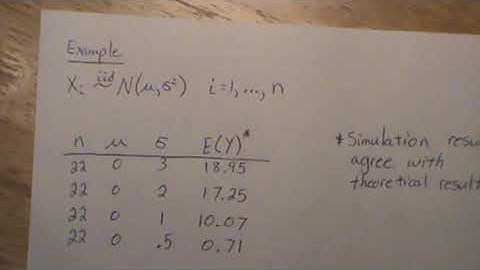 Example
Xᵢ iid~ N(μ, σ²) i=1,...,n
n μ σ E(Y)*
22 0 3 18.95
22 0 2 17.25
22 0 1 10.07
22 0 .5 0.71
*Simulation
agree with
theoretical